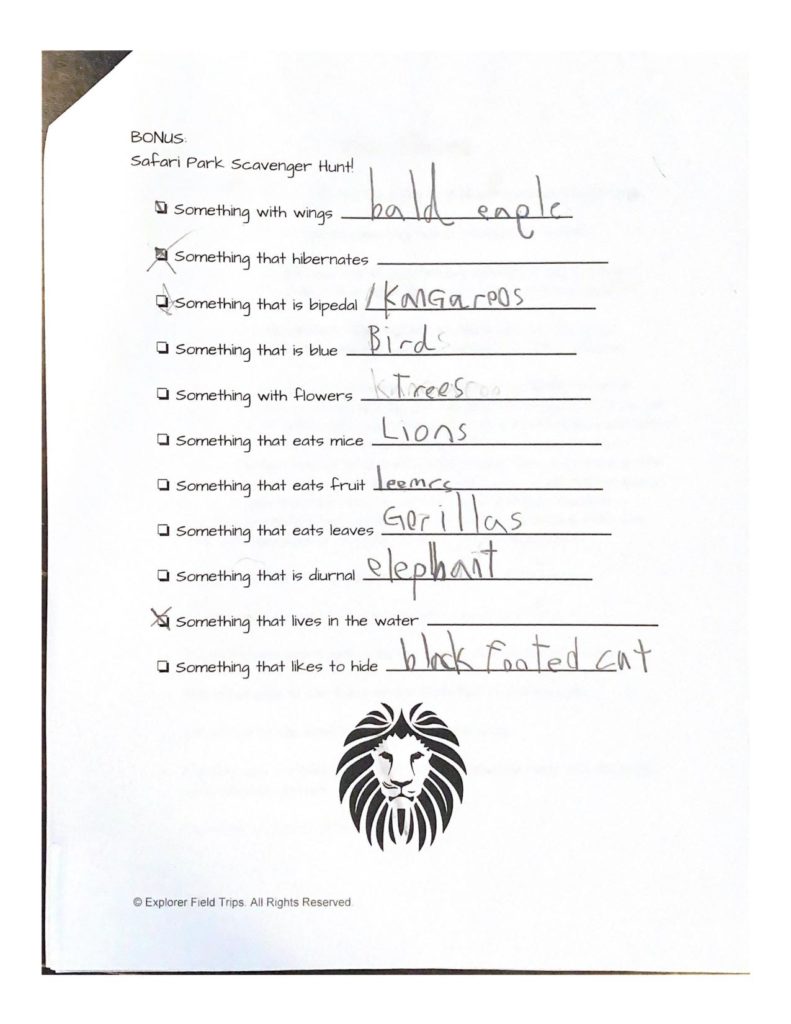 BONUS:
Safari Park Scavenger Hunt!
Something with wings bald eagle
Something that hibernates
Something that is bipedal Kangareos
Something that is blue Birds
Something with flowers Trees
Something that eats mice Lions
Something that eats fruit leemrs
Something that eats leaves Gerillas
Something that is diurnal elephant
Something that lives in the water
Something that likes to hide black footed cat
© Explorer Field Trips. All Rights Reserved.